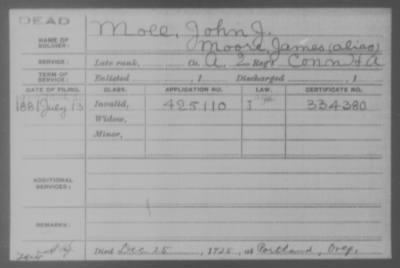 DEAD
NAME OF SOLDIER: Moll, John J.
Moore, James (alias)
SERVICE: Late rank, Co. A, 2 Reg't Conn H A
TERM OF SERVICE: Enlisted , 1 Discharged , 1
DATE OF FILING. CLASS. APPLICATION NO. LAW. CERTIFICATE NO.
1881 July 13 Invalid, 425110 334380
Widow,
Minor,
ADDITIONAL SERVICES:
REMARKS:
Died Dec 25, 1925, at Portland, Oreg.